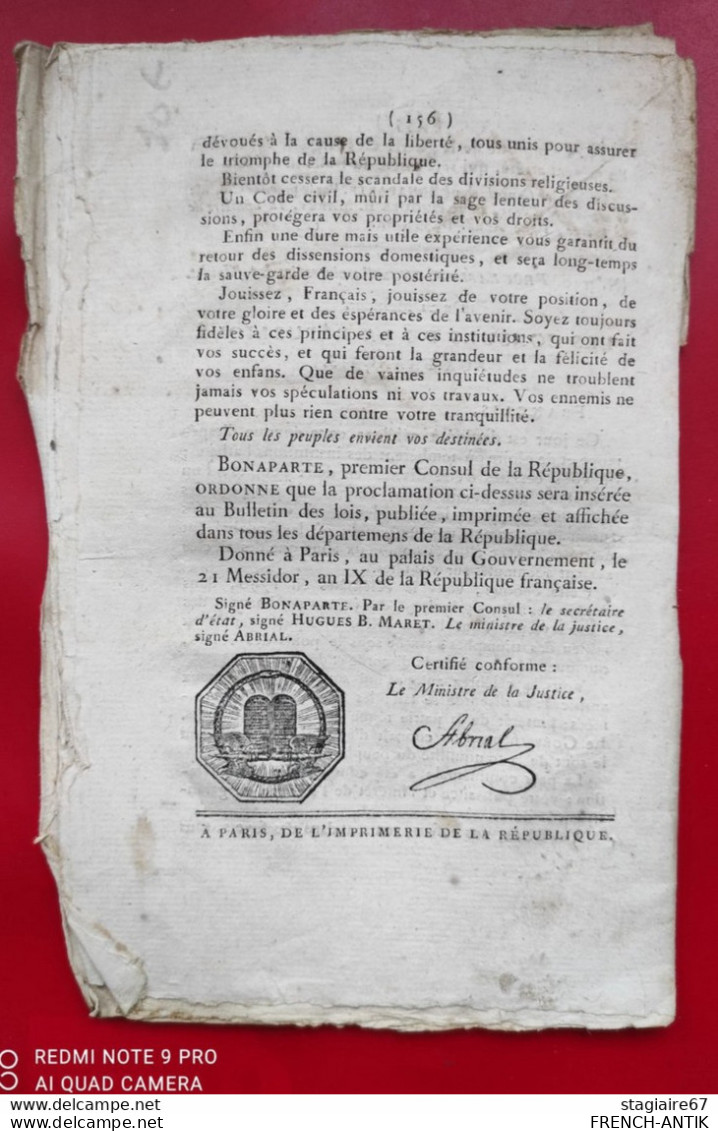 ( 156 )
dévoués à la cause de la liberté, tous unis pour assurer
le triomphe de la République.
Bientôt cessera le scandale des divisions religieuses.
Un Code civil, mûri par la sage lenteur des discus-
sions, protégera vos propriétés et vos droits.
Enfin une dure mais utile expérience vous garantit du
retour des dissensions domestiques, et sera long-temps
la sauve-garde de votre postérité.
Jouissez, Français, jouissez de votre position, de
votre gloire et des espérances de l'avenir. Soyez toujours
fidèles à ces principes et à ces institutions, qui ont fait
vos succès, et qui feront la grandeur et la félicité de
vos enfans. Que de vaines inquiétudes ne troublent
jamais vos spéculations ni vos travaux. Vos ennemis ne
peuvent plus rien contre votre tranquillité.
Tous les peuples envient vos destinées.
BONAPARTE, premier Consul de la République,
ORDONNE que la proclamation ci-dessus sera insérée
au Bulletin des lois, publiée, imprimée et affichée
dans tous les départemens de la République.
Donné à Paris, au palais du Gouvernement, le
21 Messidor, an IX de la République française.
Signé BONAPARTE. Par le premier Consul : le secrétaire
d'état, signé HUGUES B. MARET. Le ministre de la justice,
signé ABRIAL.
Certifié conforme :
Le Ministre de la Justice,
Abrial
À PARIS, DE L'IMPRIMERIE DE LA RÉPUBLIQUE.
REDMI NOTE 9 PRO
AI QUAD CAMERA
stagiaire67
FRENCH-ANTIK